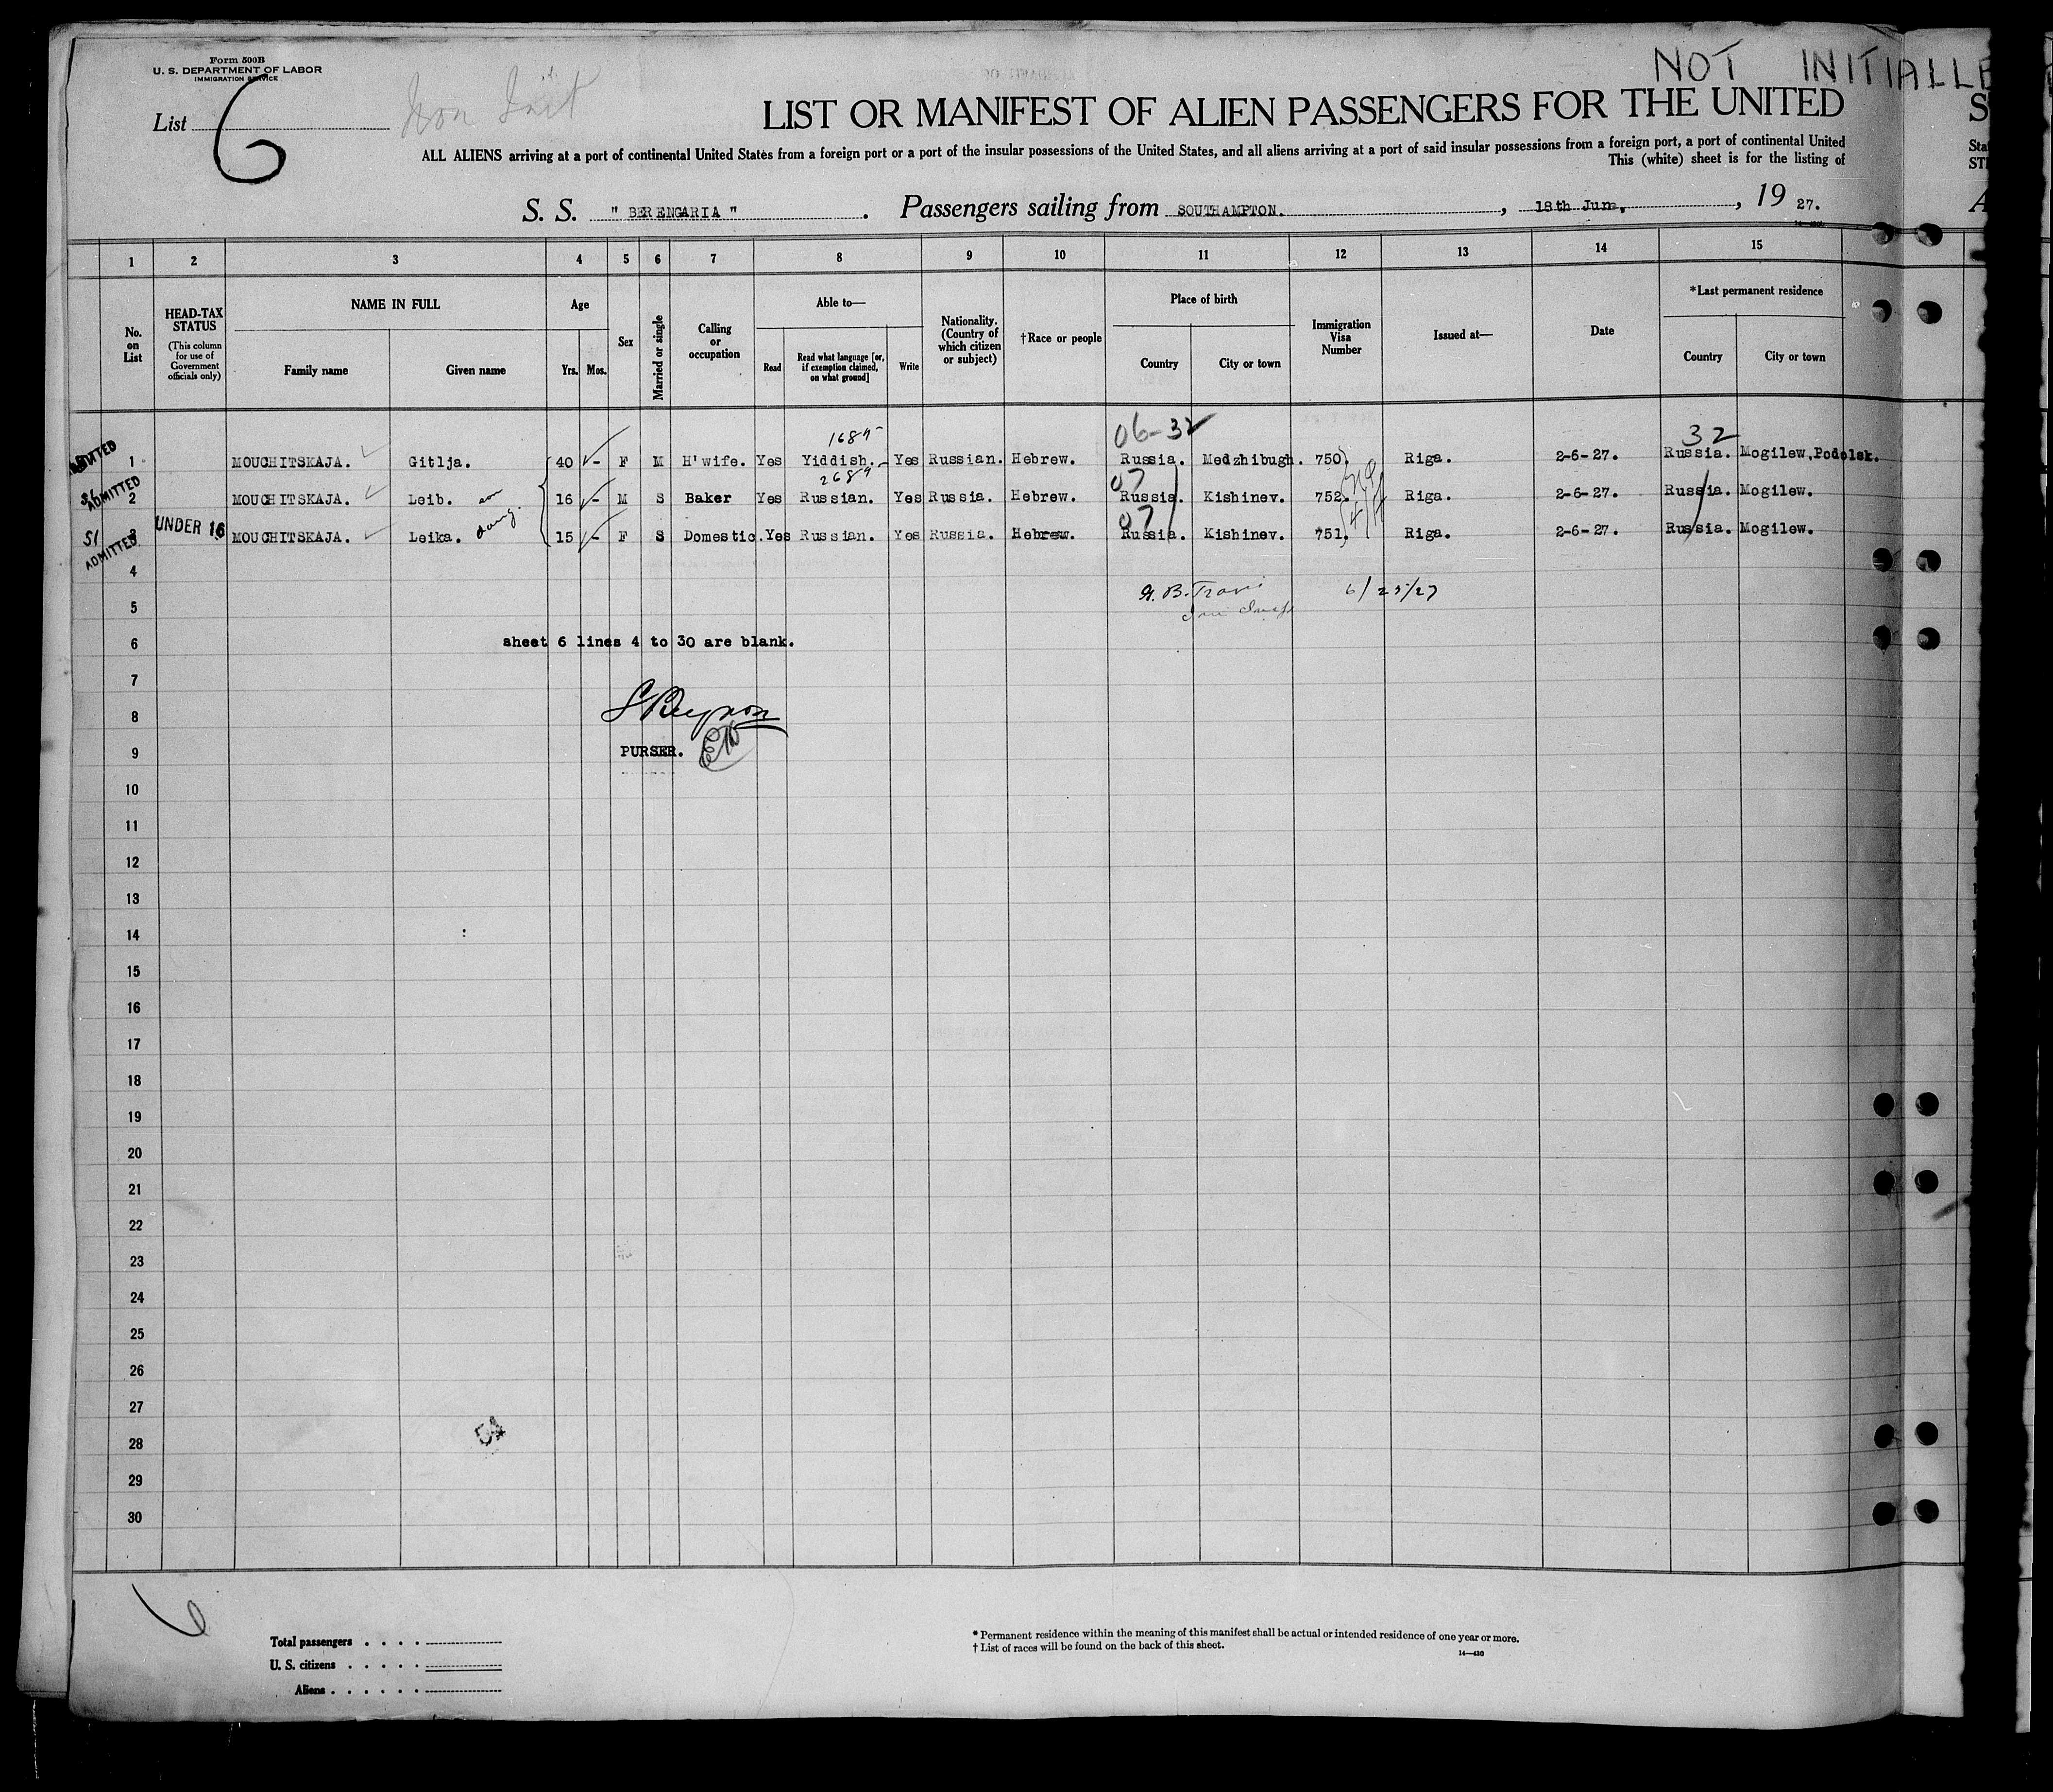 Form 500B
U. S. DEPARTMENT OF LABOR
IMMIGRATION SERVICE
NOT INITIALLE
List 6
Non Init
LIST OR MANIFEST OF ALIEN PASSENGERS FOR THE UNITED
ALL ALIENS arriving at a port of continental United States from a foreign port or a port of the insular possessions of the United States, and all aliens arriving at a port of said insular possessions from a foreign port, a port of continental United
This (white) sheet is for the listing of
S. S. " BERENGARIA " . Passengers sailing from SOUTHAMPTON. , 18th Jun. , 19 27.
1 2 3 4 5 6 7 8 9 10 11 12 13 14 15
No. on List
HEAD-TAX STATUS
(This column for use of Government officials only)
NAME IN FULL
Family name
Given name
Age
Yrs. Mos.
Sex
Married or single
Calling or occupation
Able to—
Read
Read what language [or, if exemption claimed, on what ground]
Write
Nationality. (Country of which citizen or subject)
†Race or people
Place of birth
Country
City or town
Immigration Visa Number
Issued at—
Date
*Last permanent residence
Country
City or town
1687 06-32 32
ADMITTED 1 MOUCHITSKAJA. Gitlja. 40 - F M H'wife. Yes Yiddish. Yes Russian. Hebrew. Russia. Medzhibugh. 750 Riga. 2-6-27. Russia. Mogilew,Podolsk.
2687 07
ADMITTED 2 MOUCHITSKAJA. Leib. son 16 - M S Baker Yes Russian. Yes Russia. Hebrew. Russia. Kishinev. 752. Riga. 2-6-27. Russia. Mogilew.
07
ADMITTED 3 UNDER 16 MOUCHITSKAJA. Leika. daug. 15 - F S Domestic. Yes Russian. Yes Russia. Hebrew. Russia. Kishinev. 751. Riga. 2-6-27. Russia. Mogilew.
4
5
6/25/27
6 sheet 6 lines 4 to 30 are blank.
7
8
9 PURSER.
10
11
12
13
14
15
16
17
18
19
20
21
22
23
24
25
26
27
28
29
30
54
6
Total passengers
U. S. citizens
Aliens
* Permanent residence within the meaning of this manifest shall be actual or intended residence of one year or more.
† List of races will be found on the back of this sheet.
14—430